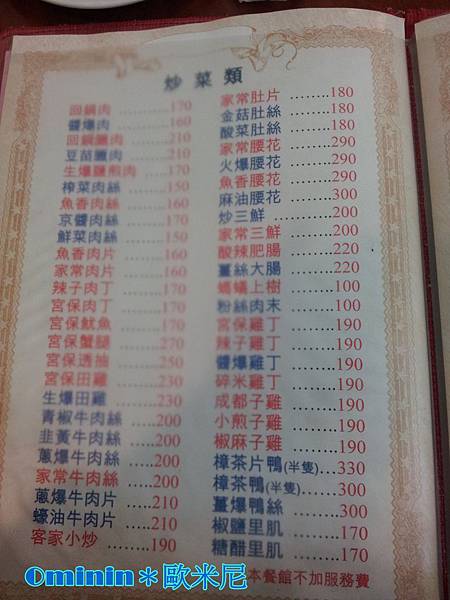 炒菜類
回鍋肉 ........170
醬爆肉 ........160
回鍋臘肉 ......210
豆苗臘肉 ......210
生爆鹽煎肉 ....170
榨菜肉絲 ......150
魚香肉絲 ......160
京醬肉絲 ......170
鮮菜肉絲 ......150
魚香肉片 ......160
家常肉片 ......160
辣子肉丁 ......170
宮保肉丁 ......170
宮保魷魚 ......170
宮保蟹腿 ......270
宮保透抽 ......250
宮保田雞 ......230
生爆田雞 ......230
青椒牛肉絲 .....200
韭黃牛肉絲 .....200
蔥爆牛肉絲 .....200
家常牛肉絲 .....200
蔥爆牛肉片 .....210
蠔油牛肉片 .....210
客家小炒 ........190
家常肚片 ........180
金菇肚絲 ........180
酸菜肚絲 ........180
家常腰花 ........290
火爆腰花 ........290
魚香腰花 ........290
麻油腰花 ........300
炒三鮮 ............200
家常三鮮 ........200
酸辣肥腸 ........220
薑絲大腸 ........220
螞蟻上樹 ........100
粉絲肉末 ........100
宮保雞丁 ........190
辣子雞丁 ........190
醬爆雞丁 ........190
碎米雞丁 ........190
成都子雞 ........190
小煎子雞 ........190
椒麻子雞 ........190
樟茶片鴨(半隻)...330
樟茶鴨(半隻)......300
薑爆鴨絲 ........300
椒鹽里肌 ........170
糖醋里肌 ........170
本餐館不加服務費
Ominin＊歐米尼